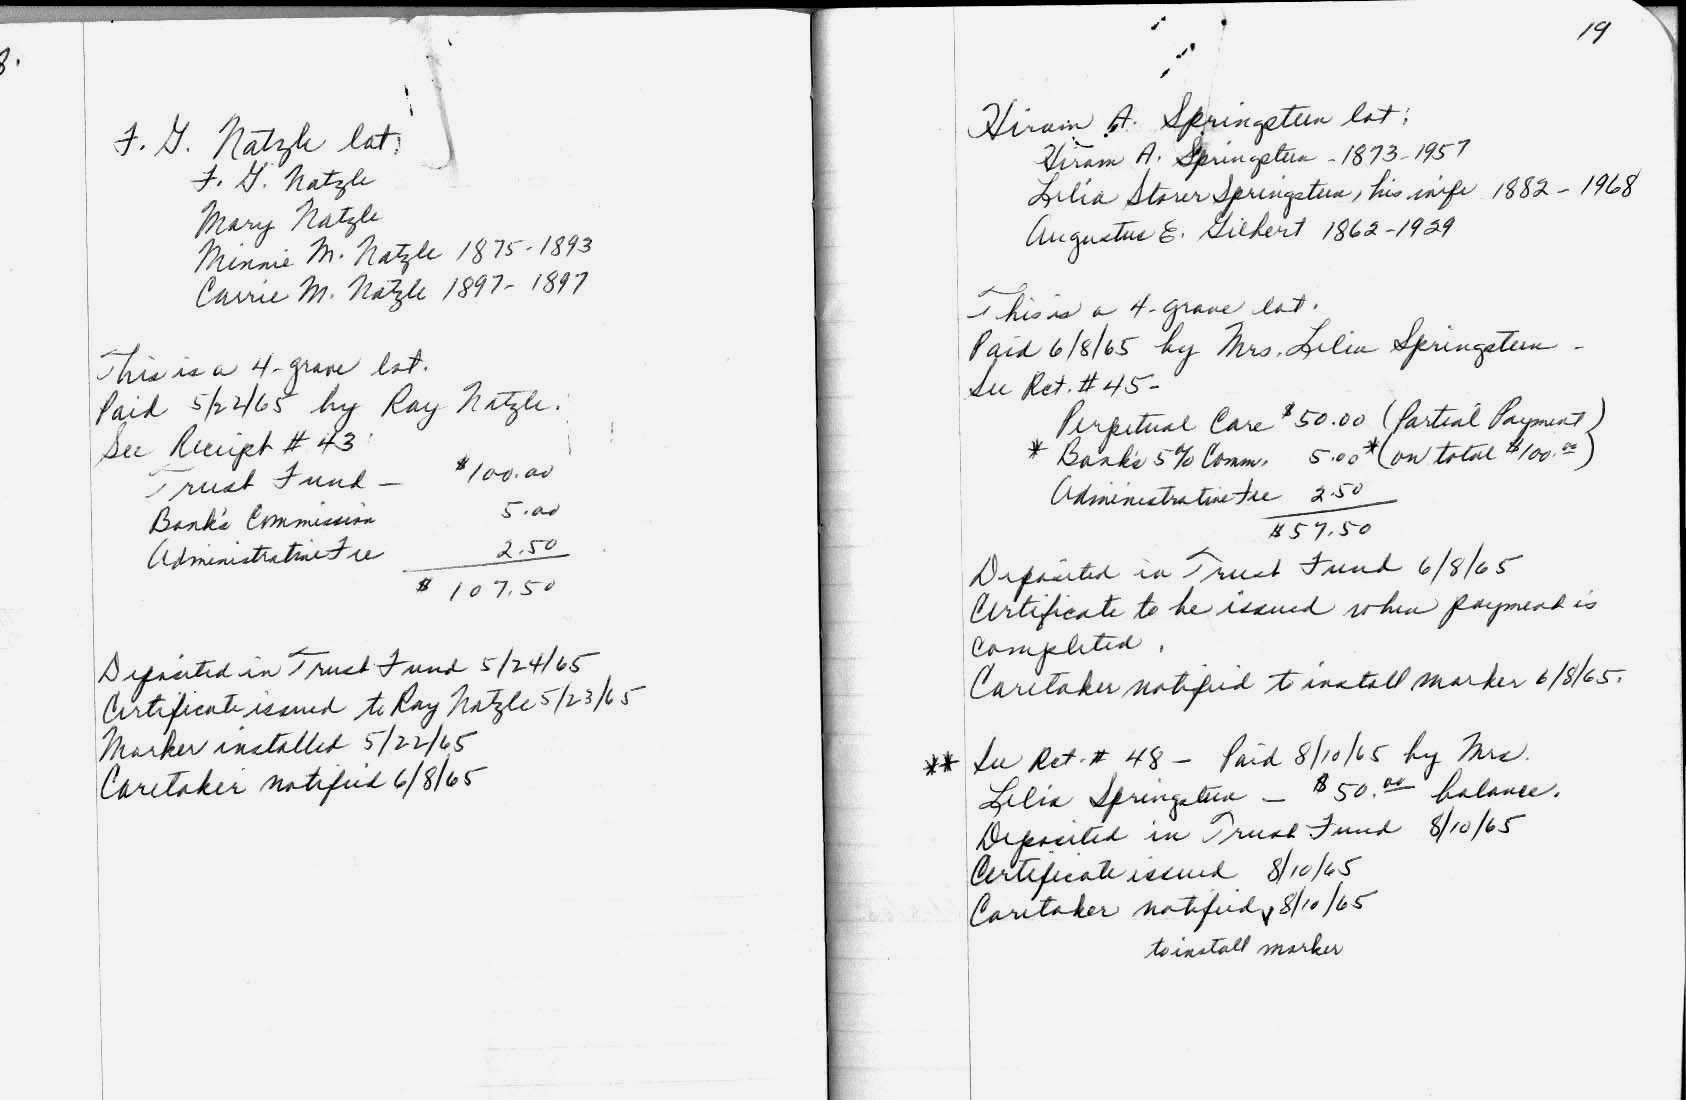 8.
F. G. Natzle lot;
F. G. Natzle
Mary Natzle
Minnie M. Natzle 1875-1893
Carrie M. Natzle 1897-1897
This is a 4-grave lot.
Paid 5/22/65 by Ray Natzle.
See Receipt # 43
Trust Fund — $100.00
Bank's Commission 5.00
Administrative Fee 2.50
$ 107.50
Deposited in Trust Fund 5/24/65
Certificate issued to Ray Natzle 5/23/65
Marker installed 5/22/65
Caretaker notified 6/8/65
19
Hiram A. Springsteen lot;
Hiram A. Springsteen - 1873-1957
Lelia Storer Springsteen, his wife 1882 - 1968
Augustus E. Gilbert 1862-1929
This is a 4-grave lot.
Paid 6/8/65 by Mrs. Lelia Springsteen -
See Rct. # 45-
Perpetual Care $50.00 (Partial Payment)
* Bank's 5% Comm. 5.00 * (on total $100.00)
Administrative Fee 2.50
$57.50
Deposited in Trust Fund 6/8/65
Certificate to be issued when payment is
completed.
Caretaker notified to install marker 6/8/65.
** See Rct. # 48 - Paid 8/10/65 by Mrs.
Lelia Springsteen - $50.00 balance.
Deposited in Trust Fund 8/10/65
Certificate issued 8/10/65
Caretaker notified 8/10/65
to install marker